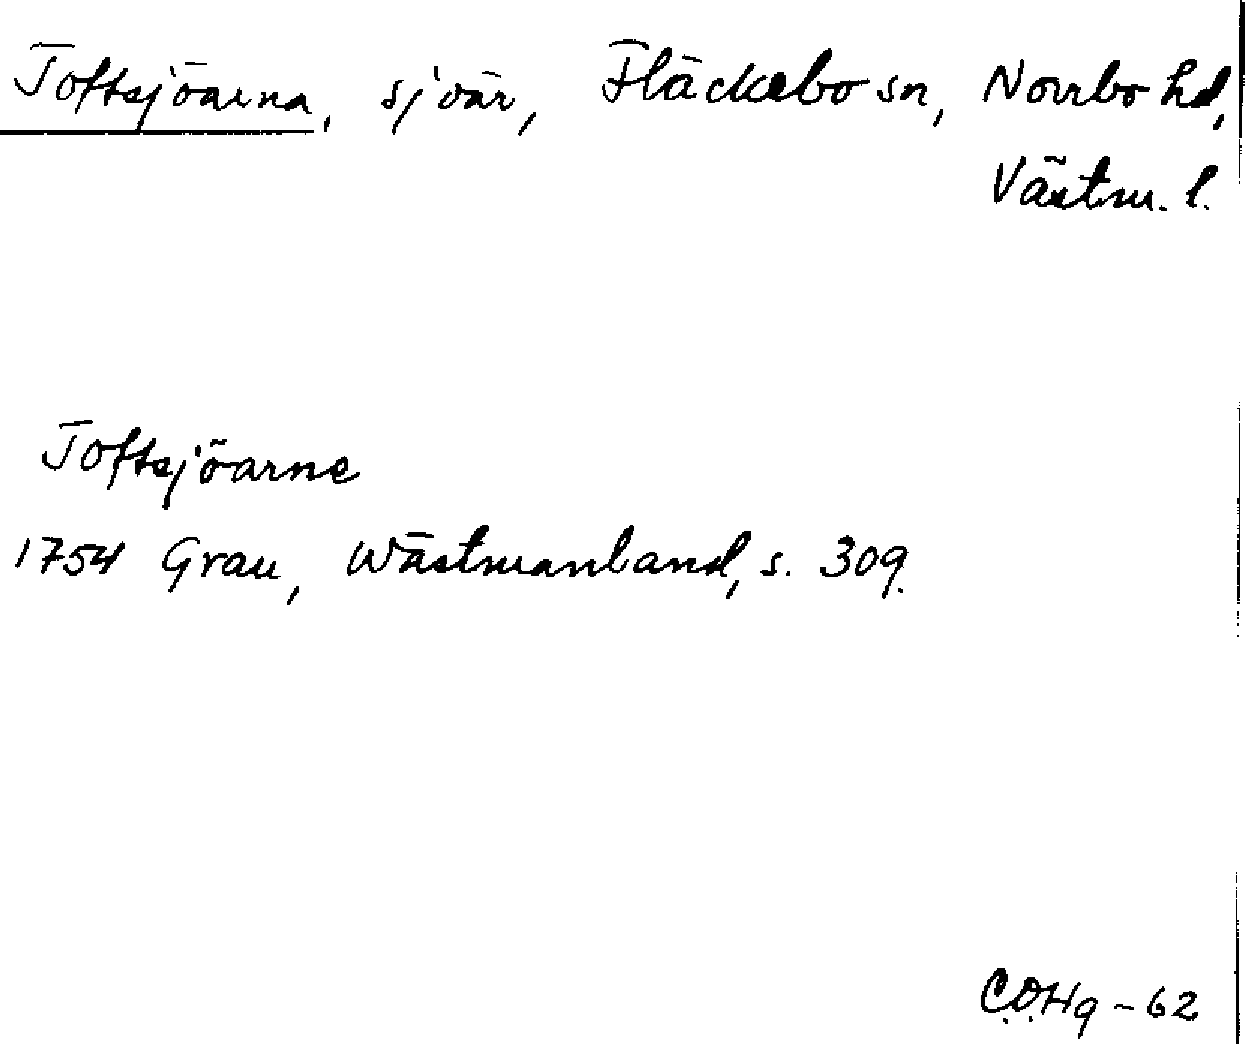 Toftsjöarna, sjöar, Fläckebo sn, Norrbo hd,
Västm. l.
Toftsjöarne
1754 Grau, Wästmanland, s. 309.
C.O.Hg - 62